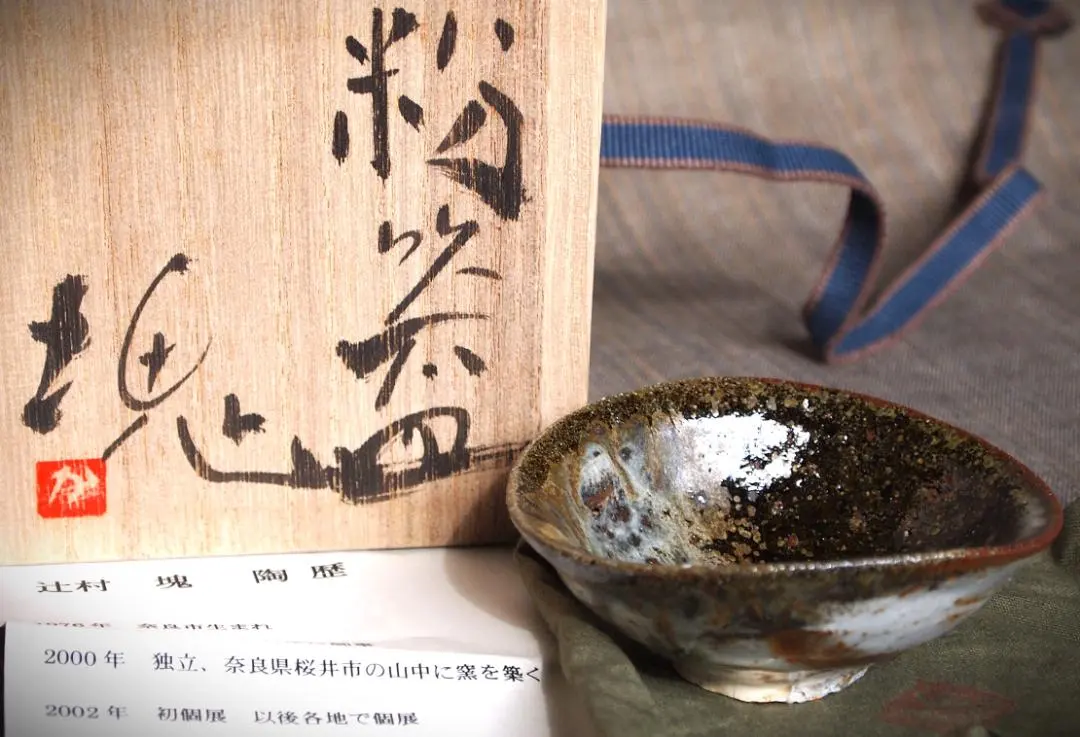 粉 盃
塊
辻村 塊 陶歴
1976年 奈良市生まれ
2000年 独立、奈良県桜井市の山中に窯を築く
2002年 初個展 以後各地で個展